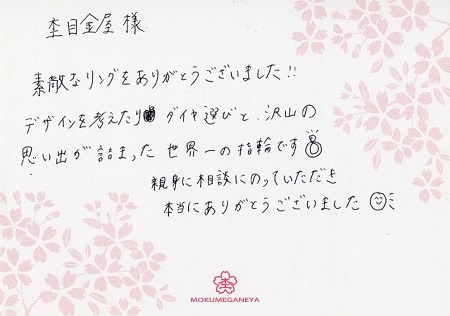 杢目金屋 様
素敵なリングをありがとうございました!!
デザインを考えたり ダイヤ選びと、沢山の
思い出が詰まった 世界一の指輪です
親身に相談にのっていただき
本当にありがとうございました
MOKUMEGANEYA